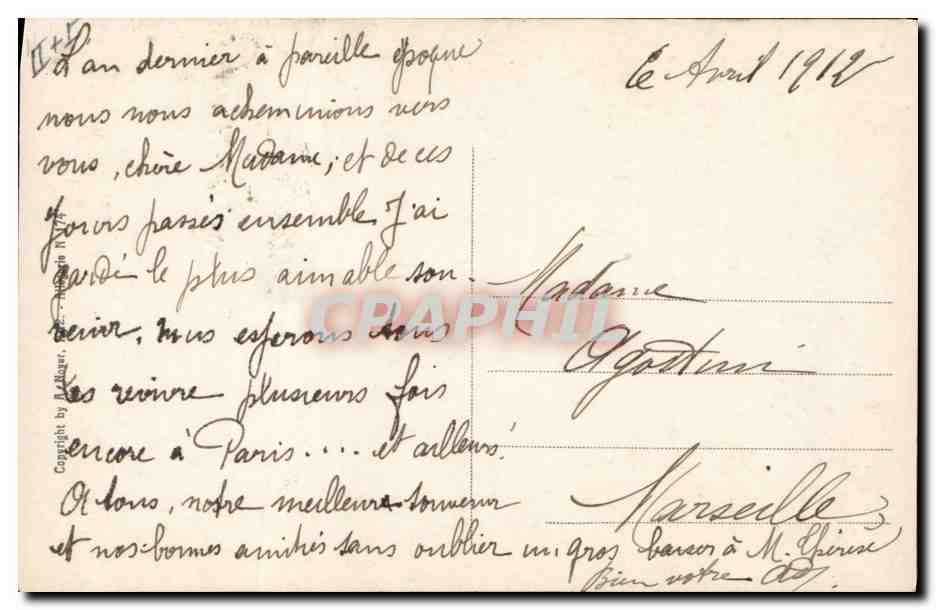 II + F
L'an dernier à pareille époque
nous nous acheminions vers
vous, chère Madame, et de ces
jours passés ensemble J'ai
gardé le plus aimable sou-
venir. Nous esperons vous
les revivre plusieurs fois
encore à Paris.... et ailleurs.
A tous, notre meilleure souvenir
et nos bonnes amitiés sans oublier un gros baiser à M. Thérèse
bien votre
6 Avril 1912
Madame
Agostini
Marseille
Copyright by A. Noyer,
CPAPHIL